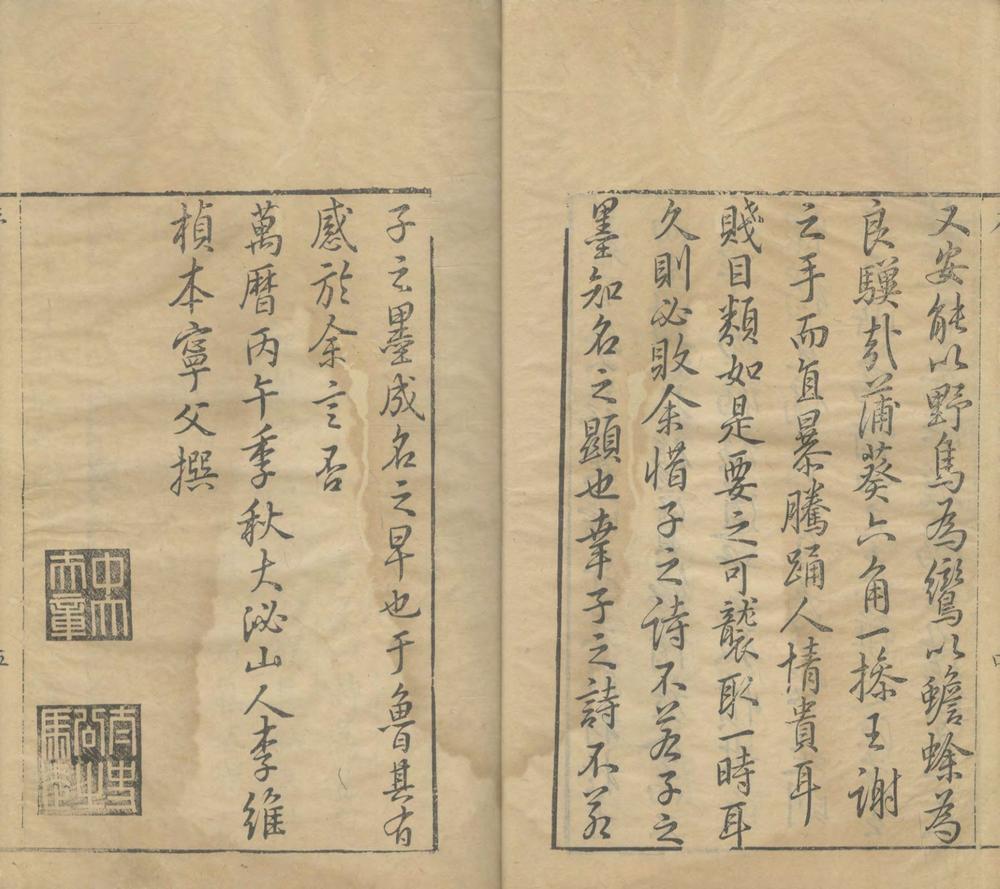 又安能以野鳧為鸞以蟾蜍為
良驥哉蒲葵六角一捺王謝
之手而直暴騰踊人情貴耳
賤目類如是要之可襲取一時耳
久則必敗余惜子之詩不若子之
墨知名之顯也幸子之詩不若
子之墨成名之早也于魯其有
感於余言否
萬曆丙午季秋大泌山人李維
楨本寧父撰